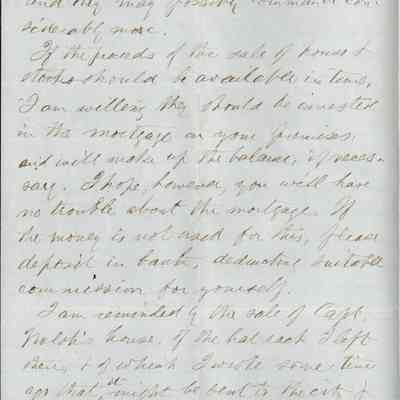 and they may possibly command con-
siderably more.
If the proceeds of the sale of house &
stocks should be available in time,
I am willing they should be invested
in the mortgage on your premises,
and will make up the balance, if neces-
sary. I hope, however, you will have
no trouble about the mortgage. If
the money is not used for this, please
deposit in bank, deducting suitable
commission for yourself.
I am reminded by the sale of Capt.
house, of the hat sack I left
there, & of which I wrote some time
ago that it might be sent to the city &